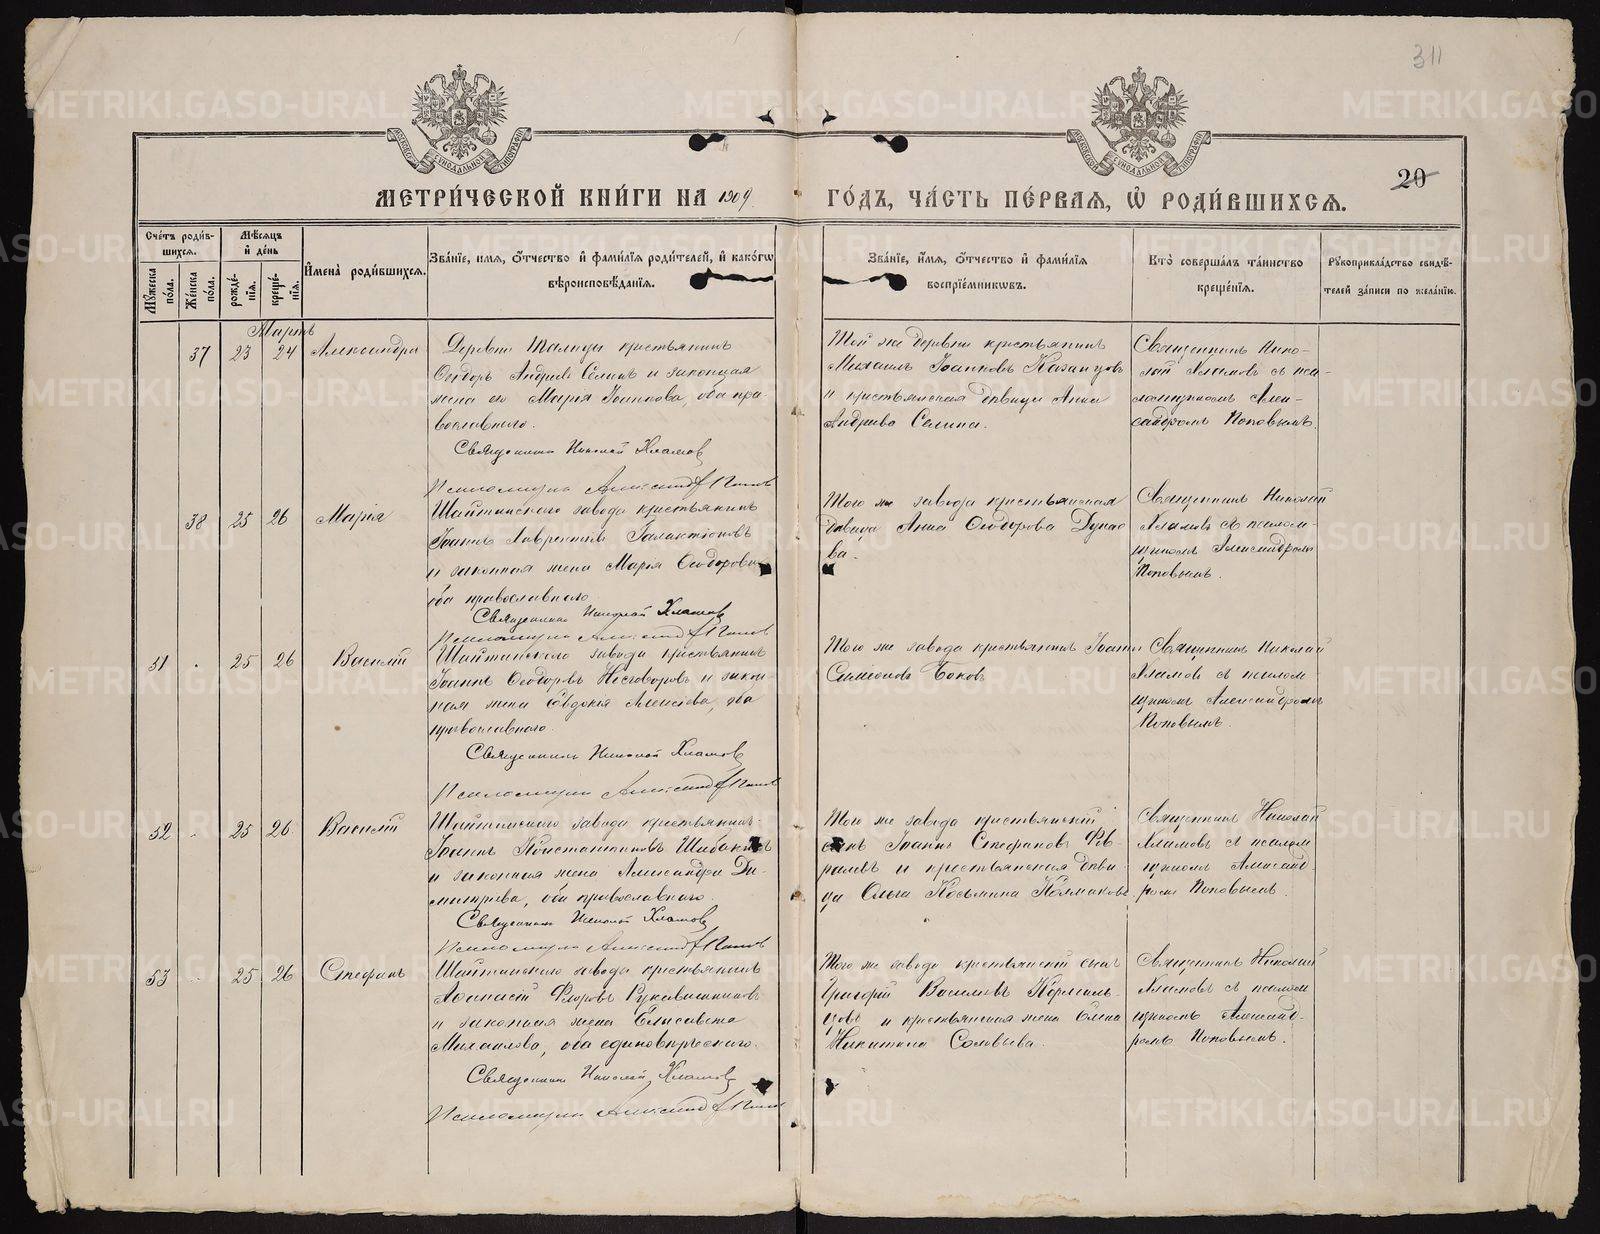 311
20
МЕТРИ́ЧЕСКОЙ КНИ́ГИ НА 1909 ГО́ДЪ, ЧА́СТЬ ПЕ́РВАЯ, Ѡ РОДИ́ВШИХСЯ.
Сче́тъ роди́в-
шихся.
Мѣ́сяцъ
и де́нь
Мꙋ́жеска по́ла.
Же́нска по́ла.
рожде́-
нїя.
креще́-
нїя.
И҆мена̀ роди́вшихся.
Зва́нїе, имя, о҆́тчество и҆ фами́лїя роди́телей, и҆ како́гѡ
вѣроисповѣ́данїя.
Зва́нїе, и҆́мя, о҆́тчество и҆ фами́лїя
воспрїе́мникѡвъ.
Кто̀ соверша́лъ та́инство
креще́нїя.
Рꙋкоприкла́дство свидѣ́-
телей за́писи по жела́нїю.
Мартъ
37 23 24 Александра
Деревни Талицы крестьянинъ
Ѳеодоръ Андреевъ Селинъ и законная
жена его Марія Іоаннова, оба пра-
вославнаго.
Священникъ Николай Хламов
Псаломщикъ Александр Попов
Той же деревни крестьянинъ
Михаилъ Іоанновъ Казанцовъ
и крестьянская девица Анна
Андреева Селина.
Священникъ Нико-
лай Хламовъ съ пса-
ломщикомъ Алек-
сандромъ Поповымъ.
38 25 26 Марія
Шайтанскаго завода крестьянинъ
Іоаннъ Лаврентьевъ Галактіоновъ
и законная жена Марія Ѳеодорова
оба православнаго
Священникъ Николай Хламов
Псаломщикъ Александр Попов
Того же завода крестьянская
девица Анна Ѳеодорова Дунае
ва.
Священникъ Николай
Хламовъ съ псалом-
щикомъ Александромъ
Поповымъ.
51 25 26 Василій
Шайтанскаго завода крестьянинъ
Іоаннъ Ѳеодоровъ Несговоровъ и закон-
ная жена Евдокія Алексіева, оба
православнаго.
Священникъ Николай Хламов
Псаломщикъ Александр Попов
Того же завода крестьянинъ Іоаннъ
Симеоновъ Боковъ
Священникъ Николай
Хламовъ съ псалом
щикомъ Александромъ
Поповымъ.
52 25 26 Василій
Шайтанскаго завода крестьянинъ
Іоаннъ Константиновъ
и законная жена Александра Ди-
митріева, оба православнаго.
Священникъ Николай Хламов
Псаломщикъ Александр Попов
Того же завода крестьянскій
сынъ Іоаннъ Стефановъ Фев-
ралевъ и крестьянская деви-
ца Ольга Козьмина Колмакова
Священникъ Николай
Хламовъ съ псалом
щикомъ Александ-
ромъ Поповымъ.
53 25 26 Стефанъ
Шайтанскаго завода крестьянинъ
Аѳанасій Флоровъ Рукавишниковъ
и законная жена Елисавета
Михаилова, оба единоверческаго.
Священникъ Николай Хламов
Псаломщикъ Александр Попов
Того же завода крестьянскій сынъ
Григорій Васильевъ Кормиль-
цовъ и крестьянская жена Елена
Никитина Соловьева.
Священникъ Николай
Хламовъ съ псалом
щикомъ Александ-
ромъ Поповымъ.
METRIKI.GASO-URAL.RU